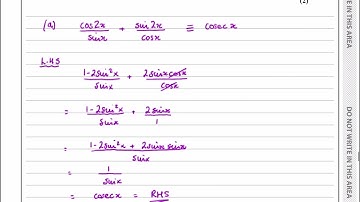 (2)
(a) cos2x/sinx + sin2x/cosx ≡ cosec x
LHS
1-2sin²x/sinx + 2sinxcosx/cosx
= 1-2sin²x/sinx + 2sinx/1
= 1-2sin²x + 2sinxsinx/sinx
= 1/sinx
= cosec x = RHS
DO NOT WRITE IN THIS AREA